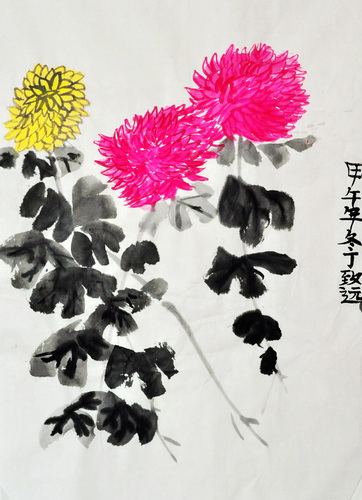 甲午年冬于致远